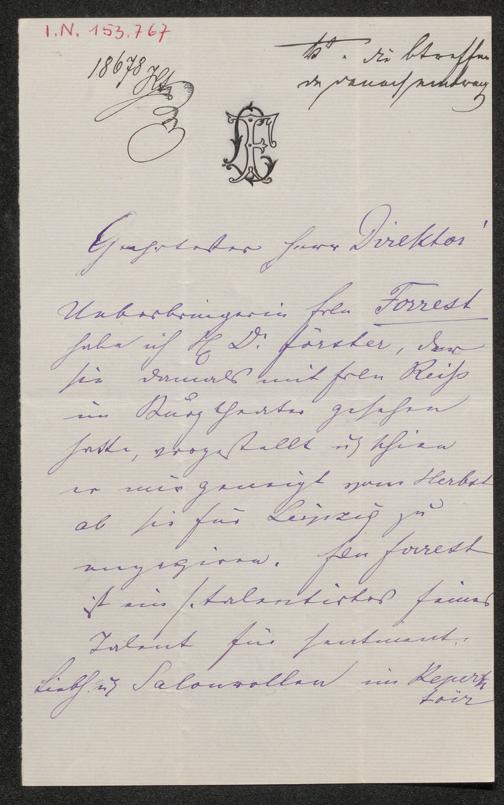 I.N. 153.767
18678
die betreffen
Geehrtester Herr Direktor
Ueberbringerin Frln Forrest
habe ich H Dr Förster, der
sie damals mit Frln Reiß
im Burgtheater gesehen
hatte, vorgestellt u schien
er mir geneigt vom Herbst
ab sie für Leipzig zu
engagiren. Frln Forrest
ist ein s. talentirtes feines
Talent für sentiment.
Liebh. u Salonrollen im Reper
toir